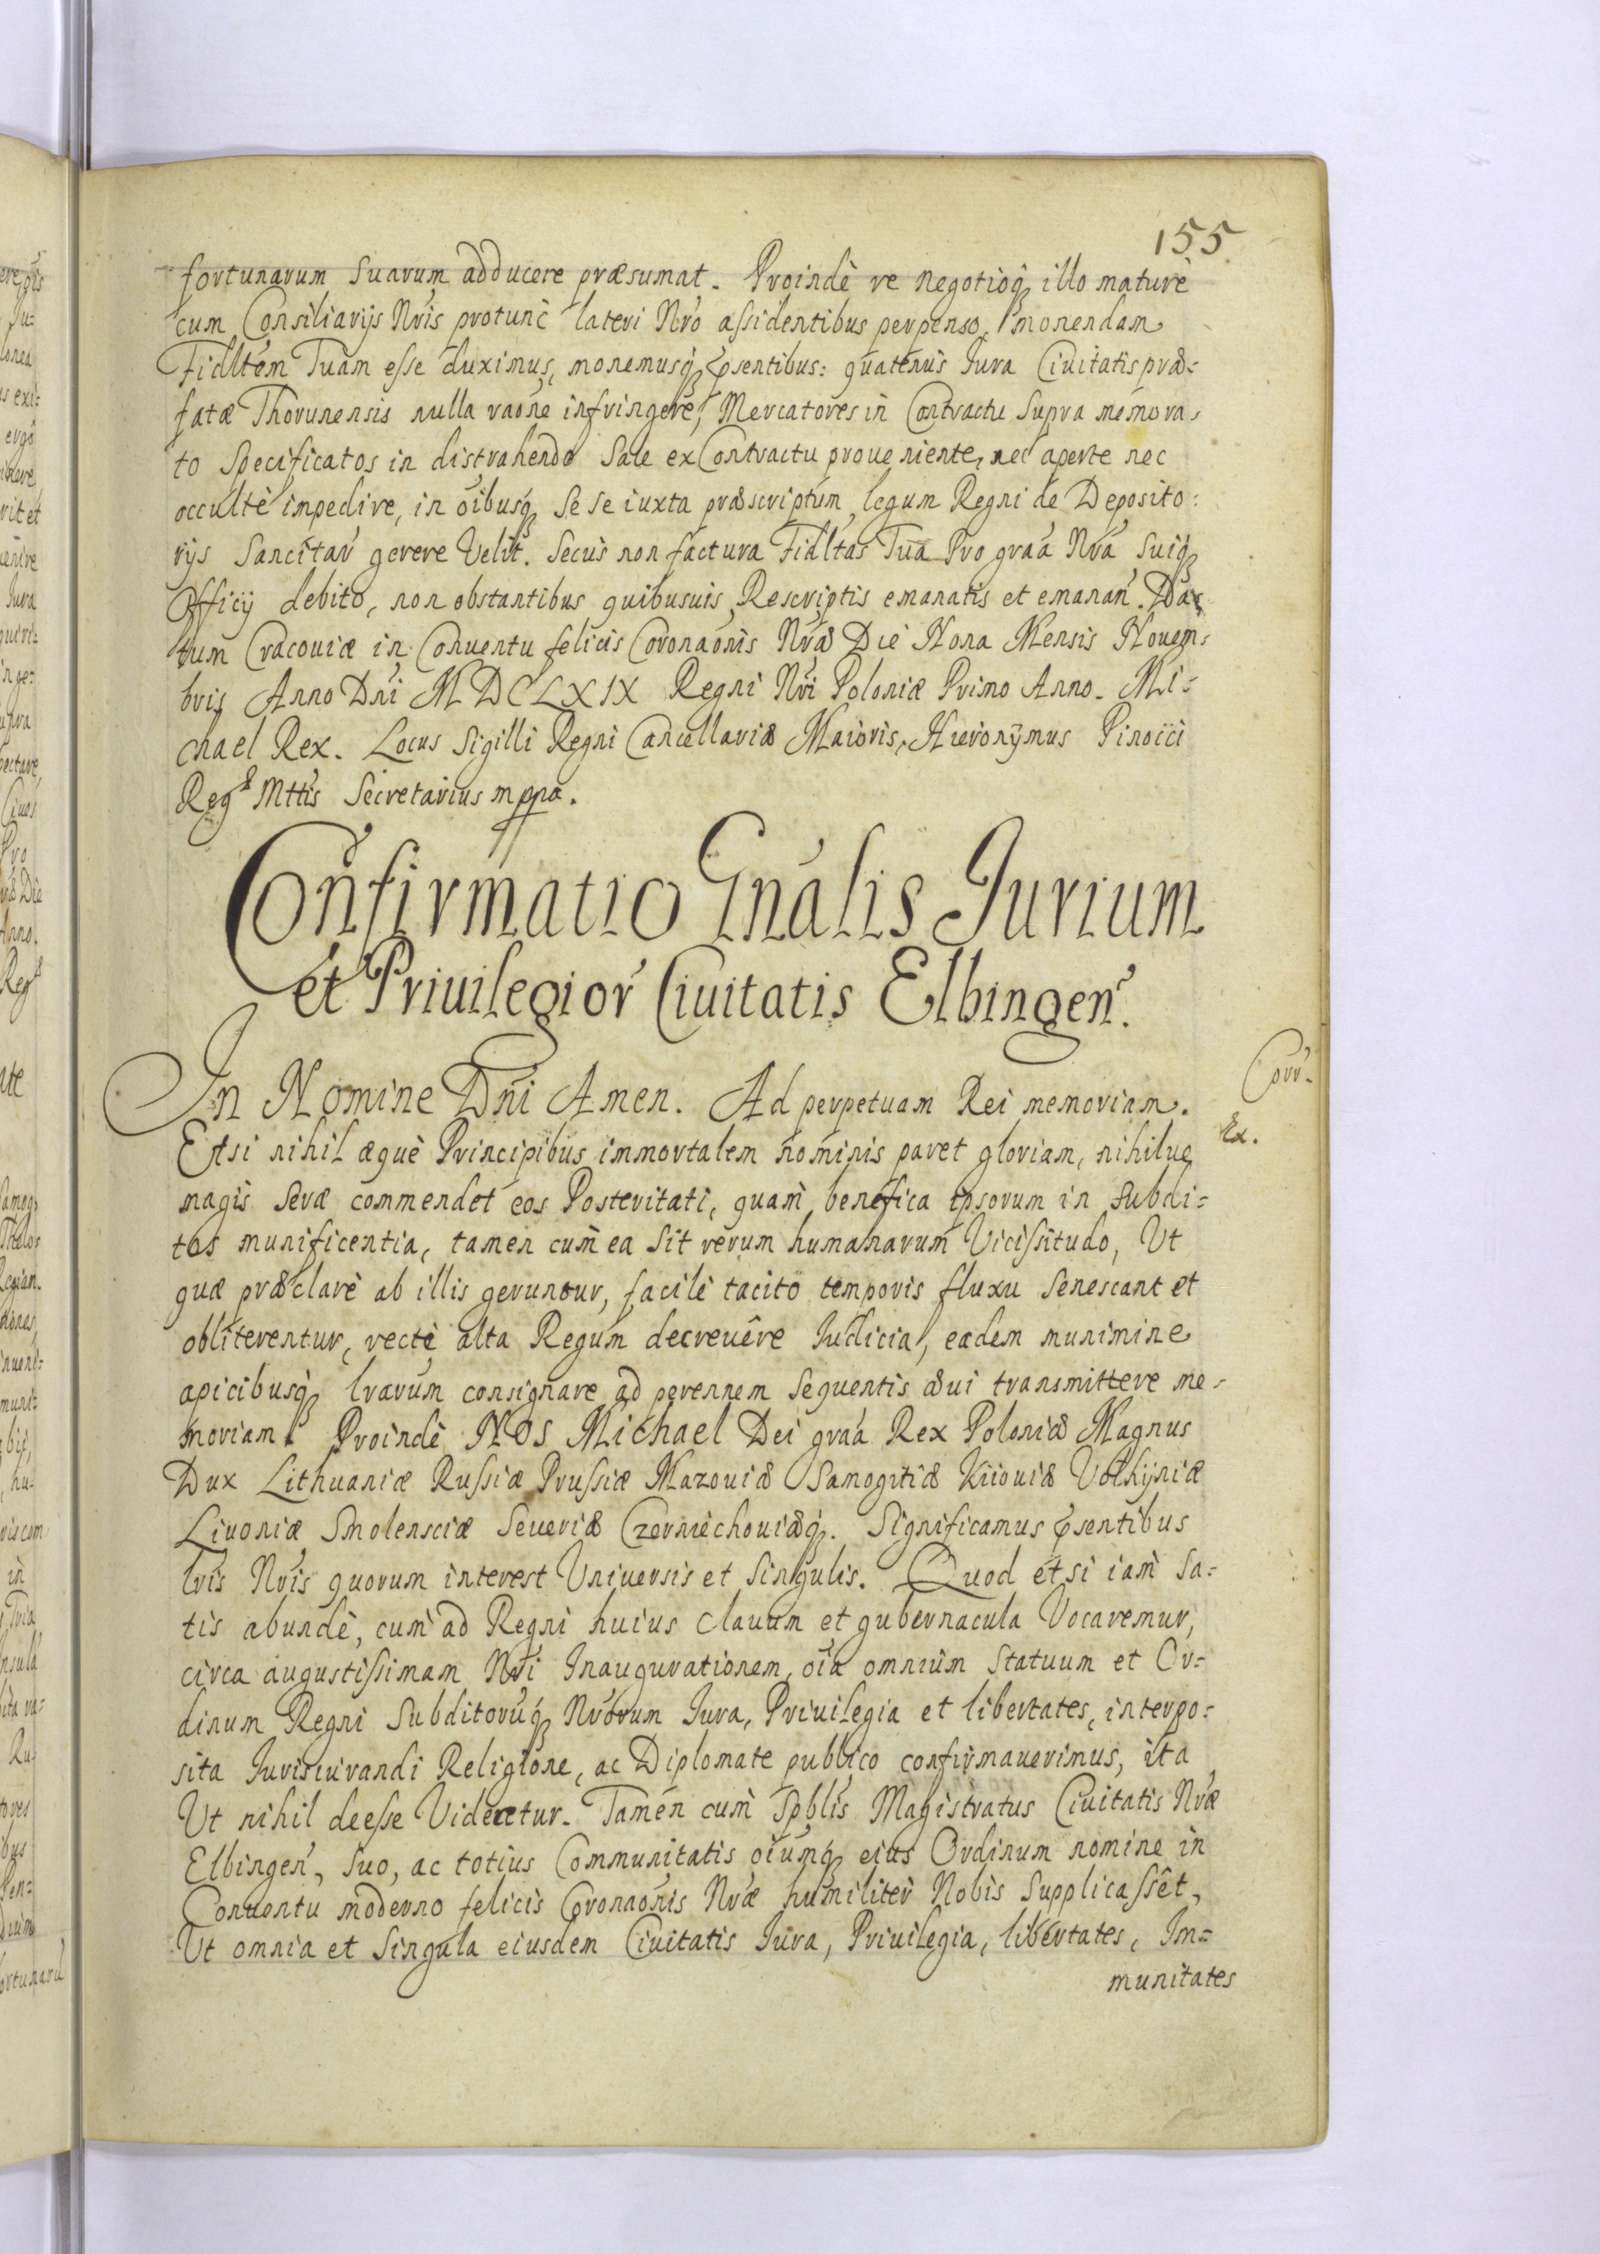 155.
fortunarum suarum adducere præsumat. Proindè re negotioq; illo maturè
cum Consiliarijs Nris protunc lateri Nro assidentibus perpenso, monendam
Fidltem Tuam esse duximus, monemusq; psentibus: quatenus Iura Civitatis præ-
fatæ Thorunensis nulla raõne infringere, Mercatores in Contractu supra memora-
to specificatos in distrahendo Sale ex Contractu proveniente, nec aperte nec
occultè impedire, in oibusq; se se iuxta præscriptum legum Regni de Deposito:
rijs sancitar gerere velit. Secus non factura Fidltas Tua Pro graa Nra, suiq;
Officij debito, non obstantibus quibusuis Rescriptis emanatis et emanan. Da-
tum Cracouiæ in Conuentu felicis Coronaonis Nræ Die Nona Mensis Nouem-
bris Anno Dni MDCLXIX Regni Nri Poloniæ Primo Anno. Mi-
chael Rex. Locus Sigilli Regni Cancellariæ Maioris, Hieronÿmus Pinocci
Reg Mttis Secretarius mppa.
Confirmatio Gnalis Jurium
et Priuilegior Ciuitatis Elbingen.
In Nomine Dni Amen. Ad perpetuam Rei memoriam.
Corr.
Ex.
Etsi nihil æquè Principibus immortalem nominis paret gloriam, nihilue
magis seræ commendet eos Posteritati, quam benefica ipsorum in subdi-
tos munificentia, tamen cum ea sit rerum humanarum Vicissitudo, Ut
quæ præclarè ab illis geruntur, facilè tacito temporis fluxu senescant et
obliterentur, rectè alta Regum decreuêre Iudicia, eadem munimine
apicibusq; lrarum consignare ad perennem sequentis æui transmittere me-
moriam. Proindè NOS Michael Dei graa Rex Poloniæ Magnus
Dux Lithuaniæ Russiæ Prussiæ Mazouiæ Samogitiæ Kijouiæ Volhÿniæ
Liuoniæ Smolensciæ Seueriæ Czerniechouiæq;. Significamus psentibus
lris Nris quorum interest Vniuersis et singulis. Quod etsi iam sa-
tis abundè, cum ad Regni huius clauum et gubernacula Vocaremur,
circa augustissimam Nri Inaugurationem, oia omnium Statuum et Or-
dinum Regni Subditoruq; Nrorum Iura, Priuilegia et libertates, interpo-
sita Iurisiurandi Religione, ac Diplomate publico confirmauerimus, ita
Ut nihil deesse Videretur. Tamen cum Spblis Magistratus Ciuitatis Nræ
Elbingen, suo, ac totius Communitatis oiumq; eius Ordinum nomine in
Conuentu moderno felicis Coronaonis Nræ humiliter Nobis supplicasset,
Ut omnia et singula eiusdem Ciuitatis Iura, Priuilegia, libertates, Im-
munitates